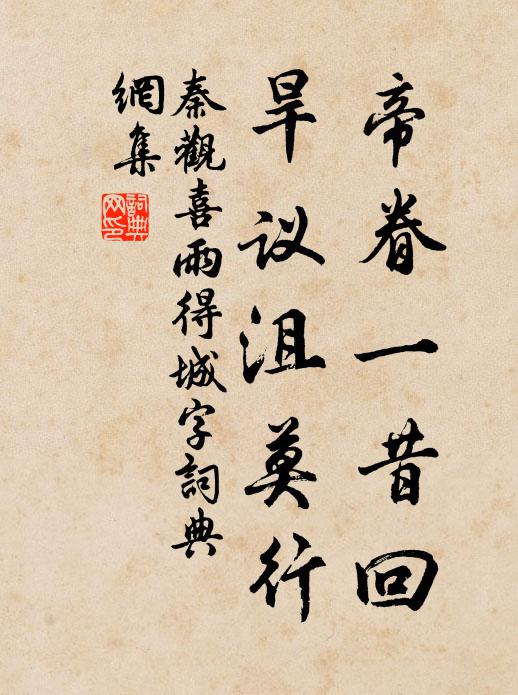 帝眷一昔回
旱议沮莫行
秦觀喜雨得城字詞典
網集
詞典
网印